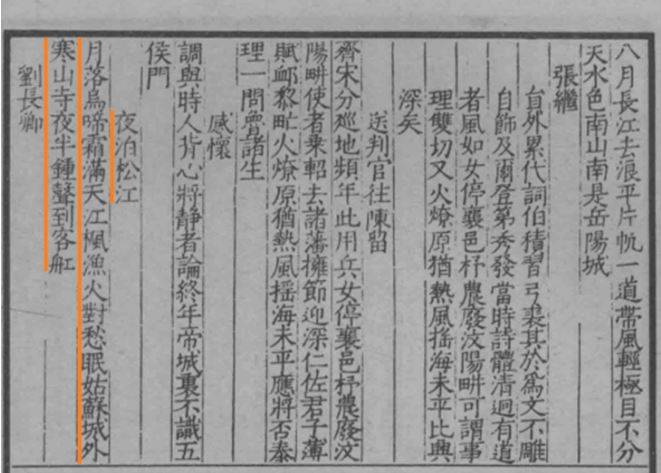 八月長江去浪平片帆一道帶風輕極目不分
天水色南山南是岳陽城
張繼
員外累代詞伯積習弓裘其於為文不雕
自飾及爾登第秀發當時詩體清迥有道
者風如女停襄邑杼農廢汶陽畊可謂事
理雙切又火燎原猶熱風搖海未平比興
深矣
送判官往陳留
齊宋分巡地頻年此用兵女停襄邑杼農廢汶
陽畊使者乗軺去諸藩擁節迎深仁佐君子薄
賦䘏黎甿火燎原猶熱風搖海未平應將否泰
理一問魯諸生
感懷
調與時人背心將靜者論終年帝城裏不識五
侯門
夜泊松江
月落烏啼霜滿天江楓漁火對愁眠姑蘇城外
寒山寺夜半鍾聲到客舡
劉長卿